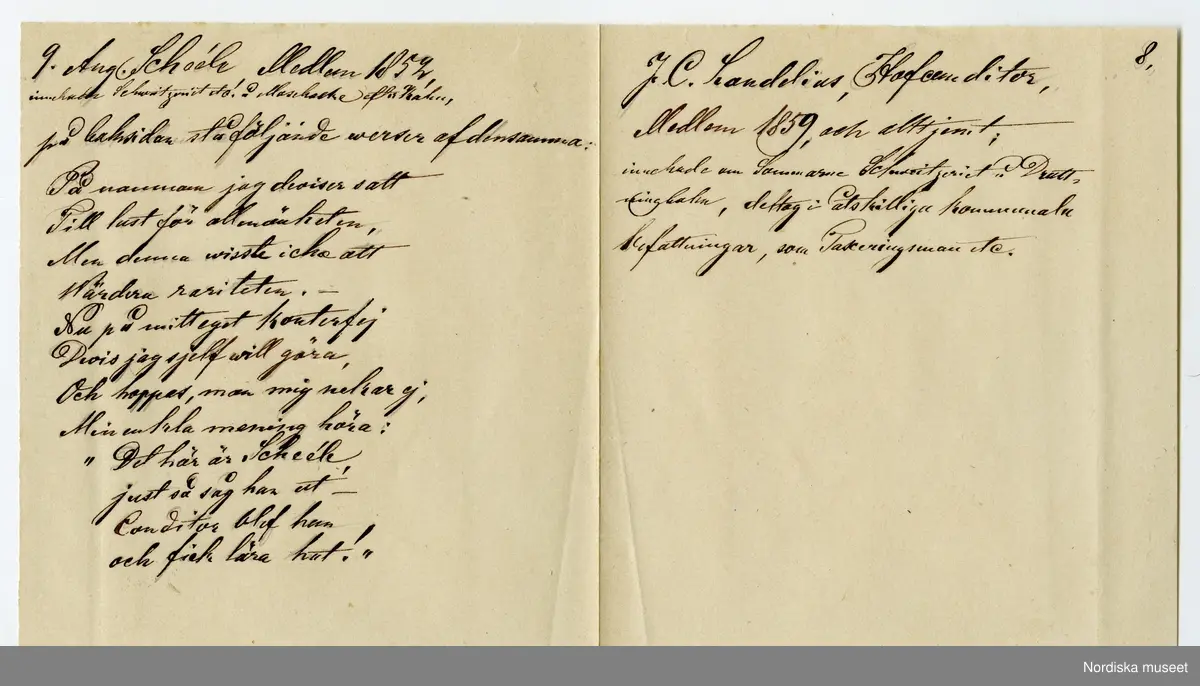 9. Aug. Schéele, Medlem 1852,
innehade Schweitzeriet No.
på baksidan stå följande werser af densamma:
På namnam jag deviser satt
Till lust för allmänheten,
Men denna wisste icke att
Wärdera rariteten. —
Nu på mitt eget konterfej
Devis jag sjelf will göra,
Och hoppas, man mig nekar ej,
Min enkla mening höra:
" Det här är Scheele,
just så såg han ut! —
Conditor blef han
och fick lära hut! "
8,
J. C. Landelius, Hofconditor,
Medlem 1859, och alltjemt;
innehade om Sommarne Schweitzeriet å Drott-
ningholm, deltog i åtskilliga kommunala
befattningar, som Taxeringsman etc.
Nordiska museet